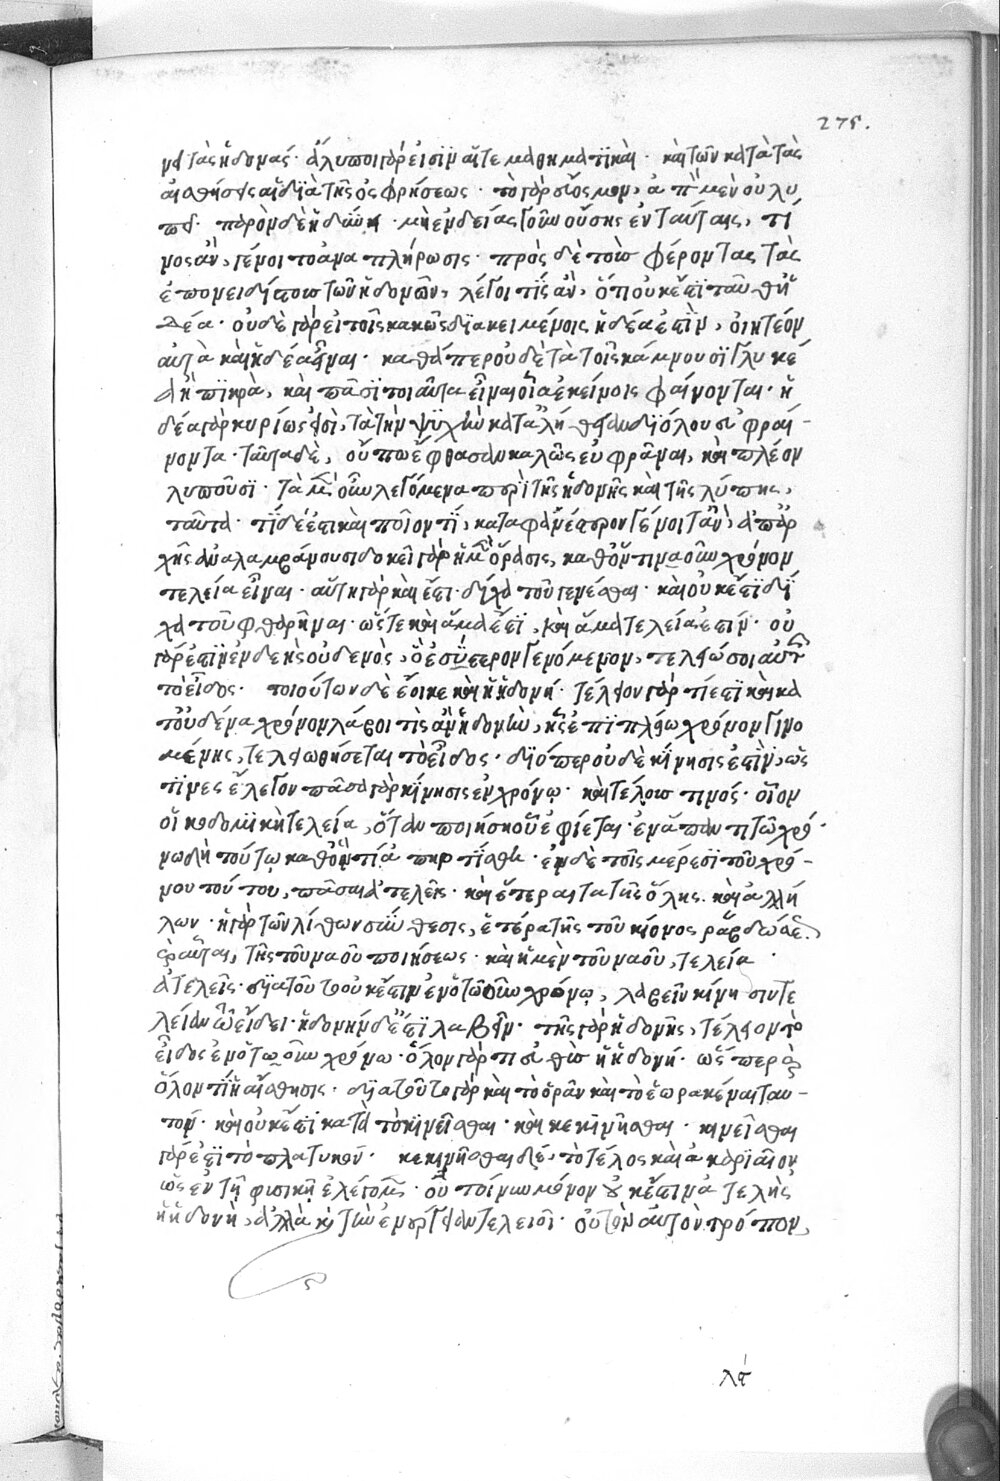 275.
τὰς ἡδονάς· ἄλυποι γάρ εἰσιν αἵ τε μαθηματικαὶ· καὶ τῶν κατὰ τὰς
αἰσθήσεις αἱ διὰ τῆς ὀσφρήσεως· τὸ γὰρ μὲν οὐ λυ
πεῖ· παρὸν δὲ ἡδύνει· μὴ ἐνδείας γοῦν οὔσης ἐν ταύταις, τί
νος ἂν, γένοιτο ἀναπλήρωσις· πρὸς δὲ τοὺς φέροντας τὰς
ἐπονειδίστους τῶν ἡδονῶν, λέγοι τίς ἂν, ὅτι οὐκ ἔστι ταῦθ' ἡ
δέα· οὐδὲ γὰρ εἰ τοῖς κακῶς διακειμένοις ἡδέα ἐστὶν, οἰητέον
αὐτὰ καὶ ἡδέα εἶναι· καθάπερ οὐδὲ τὰ τοῖς κάμνουσι γλυκέ
α ἢ πικρὰ, καὶ πᾶσι τοιαῦτα εἶναι οἷα ἐκείνοις φαίνονται· ἡ
δέα γὰρ κυρίως εἰσὶ, τὰ τὴν ψυχὴν δι' ὅλου εὐφραί-
νοντα· ταῦτα δὲ, οὔπω ἔφθασαν καλῶς εὐφρᾶναι, καὶ πλέον
λυποῦσι· τὰ μὲν οὖν λεγόμενα περὶ τῆς ἡδονῆς καὶ τῆς λύπης,
ταῦτα· τί δέ ἐστι καὶ ποῖόν τι, καταφανέστερον γένοιτ' ἂν, ἀπ' ἀρ
χῆς ἀναλαμβάνουσι δοκεῖ γὰρ ἡ μὲν ὅρασις, καθ' ὅντινα οὖν χρόνον
τελεία εἶναι· αὕτη γὰρ καὶ ἔστι δίχα τοῦ γενέσθαι· καὶ οὐκ ἔστι δί
χα τοῦ φθαρῆναι· ὥστε καὶ ἅμα ἔστι, καὶ ἅμα τελεία ἐστίν· οὐ
γάρ ἐστιν ἐνδεὴς οὐδενὸς, ὃ ἐσύστερον γενόμενον, τελειώσοι αὐτῆς
τὸ εἶδος· τοιούτων δὲ ἔοικε καὶ ἡ ἡδονή· τέλειον γάρ τι ἐστὶ καὶ κα
τ' οὐδένα χρόνον λάβοι τὶς ἂν ἡδονὴν, ἧς ἐπὶ πλείω χρόνον γινο
μένης, τελειωθήσεται τὸ εἶδος· διόπερ οὐδὲ κίνησις ἐστὶν, ὥς
τινες ἔλεγον πᾶσα γὰρ κίνησις ἐν χρόνῳ· καὶ τέλους τινός· οἷον
οἰκοδομικὴ τελεία, ὅταν ποιήσῃ οὗ ἐφίεται· ἐν ἅπαντι τῷ χρό
νῳ δὴ τούτῳ ἐν δὲ τοῖς μέρεσι τοῦ χρό-
νου τούτου, πᾶσαι ἀτελεῖς· καὶ ἕτεραι τῆς ὅλης καὶ ἀλλή
λων· ἡ γὰρ τῶν λίθων σύνθεσις, ἑτέρα τῆς τοῦ κίονος ῥαβδώσεως
καὶ αὗται, τῆς τοῦ ναοῦ ποιήσεως· καὶ ἡ μὲν τοῦ ναοῦ, τελεία·
ἀτελεῖς· διὰ τοῦτο οὐκ ἔστιν ἐν ὁτῳοῦν χρόνῳ, λαβεῖν κίνησιν τε
λείαν τῷ εἴδει· ἡδονὴν δὲ ἔστι λαβεῖν· τῆς γὰρ ἡδονῆς, τέλειον τὸ
εἶδος ἐν ὁτῳοῦν χρόνῳ· ὅλον γάρ τι εὐθὺς ἡ ἡδονή· ὥσπερ
ὅλον τί ἡ αἴσθησις· διὰ τοῦτο γὰρ καὶ τὸ ὁρᾶν καὶ τὸ ἑωρακέναι ταυ-
τόν· καὶ οὐκ ἔστι κατὰ τὸ κινεῖσθαι· καὶ κεκινῆσθαι· κινεῖσθαι
γάρ ἐστι τὸ πλατυκὸν· κεκινῆσθαι δὲ, τὸ τέλος καὶ ἀκαριαῖον
ὡς ἐν τῇ φυσικῇ ἐλέγομεν· οὐ τοίνυν μόνον οὐκ ἔστιν ἀτελὴς
ἡ ἡδονὴ, ἀλλὰ καὶ τὴν ἐνέργειαν τελειοῖ· οὐ τὸν αὐτὸν τρόπον,